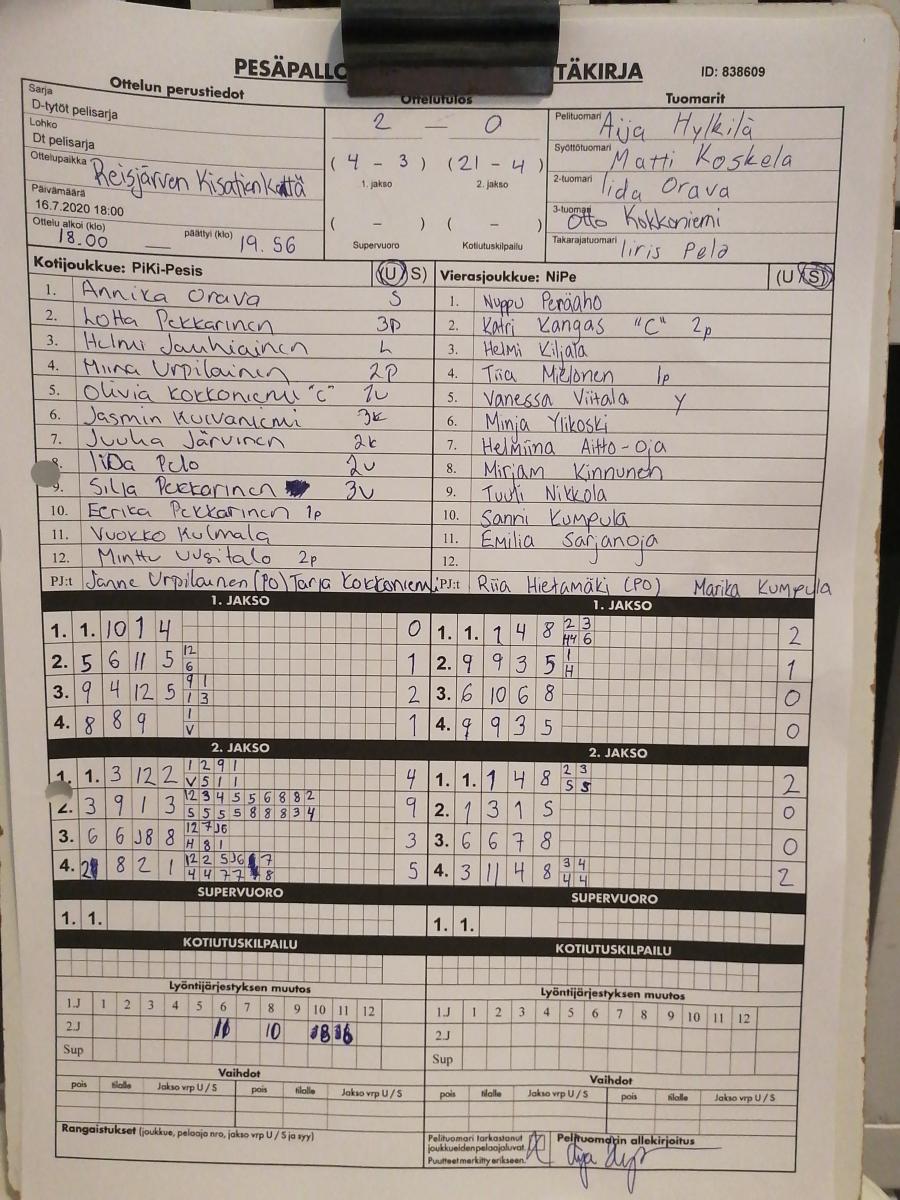 PESÄPALLO TÄKIRJA ID: 838609
Ottelun perustiedot
Sarja
D-tytöt pelisarja
Lohko
Dt pelisarja
Ottelupaikka Reisjärven Kisatien Kttä
Päivämäärä
16.7.2020 18:00
Ottelu alkoi (klo) päättyi (klo)
18.00 — 19.56
Ottelutulos
2 — 0
( 4 - 3 ) ( 21 - 4 )
1. jakso 2. jakso
( - ) ( - )
Supervuoro Kotiutuskilpailu
Tuomarit
Pelituomari Aija Hylkilä
Syöttötuomari Matti Koskela
2-tuomari Iida Orava
3-tuomari Otto Kokkoniemi
Takarajatuomari Iiris Pelo
Kotijoukkue: PiKi-Pesis (U S)
1. Annika Orava S
2. Lotta Pekkarinen 3p
3. Helmi Jauhiainen L
4. Miina Urpilainen 2P
5. Olivia Kokkoniemi "C" 1V
6. Jasmin Kuivaniemi 3k
7. Juulia Järvinen 2k
8. Iida Pelo 2v
9. Silja Pekkarinen 3v
10. Eerika Pekkarinen 1p
11. Vuokko Kulmala
12. Minttu Uusitalo 2p
PJ:t Janne Urpilainen (PO) Tarja Kokkoniemi
Vierasjoukkue: NiPe (U S)
1. Nuppu Peräaho
2. Katri Kangas "C" 2p
3. Helmi Kiljala
4. Tiia Mielonen 1p
5. Vanessa Viitala Y
6. Minja Ylikoski
7. Helmiina Aitto-oja
8. Mirjam Kinnunen
9. Tuuli Nikkola
10. Sanni Kumpula
11. Emilia Sarjanoja
12.
PJ:t Riia Hietamäki (PO) Marika Kumpula
1. JAKSO
1. 1. 10 1 4 0
2. 5 6 11 5 12 1
6
3. 9 4 12 5 9 1 2
1 3
4. 8 8 9 1 1
V
2. JAKSO
1. 1. 3 12 2 1 2 9 1 4
V 5 1 1
2. 3 9 1 3 12 3 4 5 5 6 8 8 2 9
5 5 5 5 8 8 8 3 4
3. 6 6 J8 8 12 7 J6 3
H 8 1
4. 8 2 1 12 2 5 J6 7 5
4 4 7 7 8
SUPERVUORO
1. 1.
KOTIUTUSKILPAILU
Lyöntijärjestyksen muutos
1.J 1 2 3 4 5 6 7 8 9 10 11 12
2.J 10
Sup
Vaihdot
pois tilalle Jakso vrp U / S pois tilalle Jakso vrp U / S
1. JAKSO
1. 1. 1 4 8 2 3 2
H4 6
2. 9 9 3 5 1 1
H
3. 6 10 6 8 0
4. 9 9 3 5 0
2. JAKSO
1. 1. 1 4 8 2 3 2
5 5
2. 1 3 1 5 0
3. 6 6 7 8 0
4. 3 11 4 8 3 4 2
4 4
SUPERVUORO
1. 1.
KOTIUTUSKILPAILU
Lyöntijärjestyksen muutos
1.J 1 2 3 4 5 6 7 8 9 10 11 12
2.J
Sup
Vaihdot
pois tilalle Jakso vrp U / S pois tilalle Jakso vrp U / S
Rangaistukset (joukkue, pelaaja nro, jakso vrp U / S ja syy)
Pelituomari tarkastanut
joukkueiden pelaajaluvat.
Puutteet merkitty erikseen.
Pelituomarin allekirjoitus